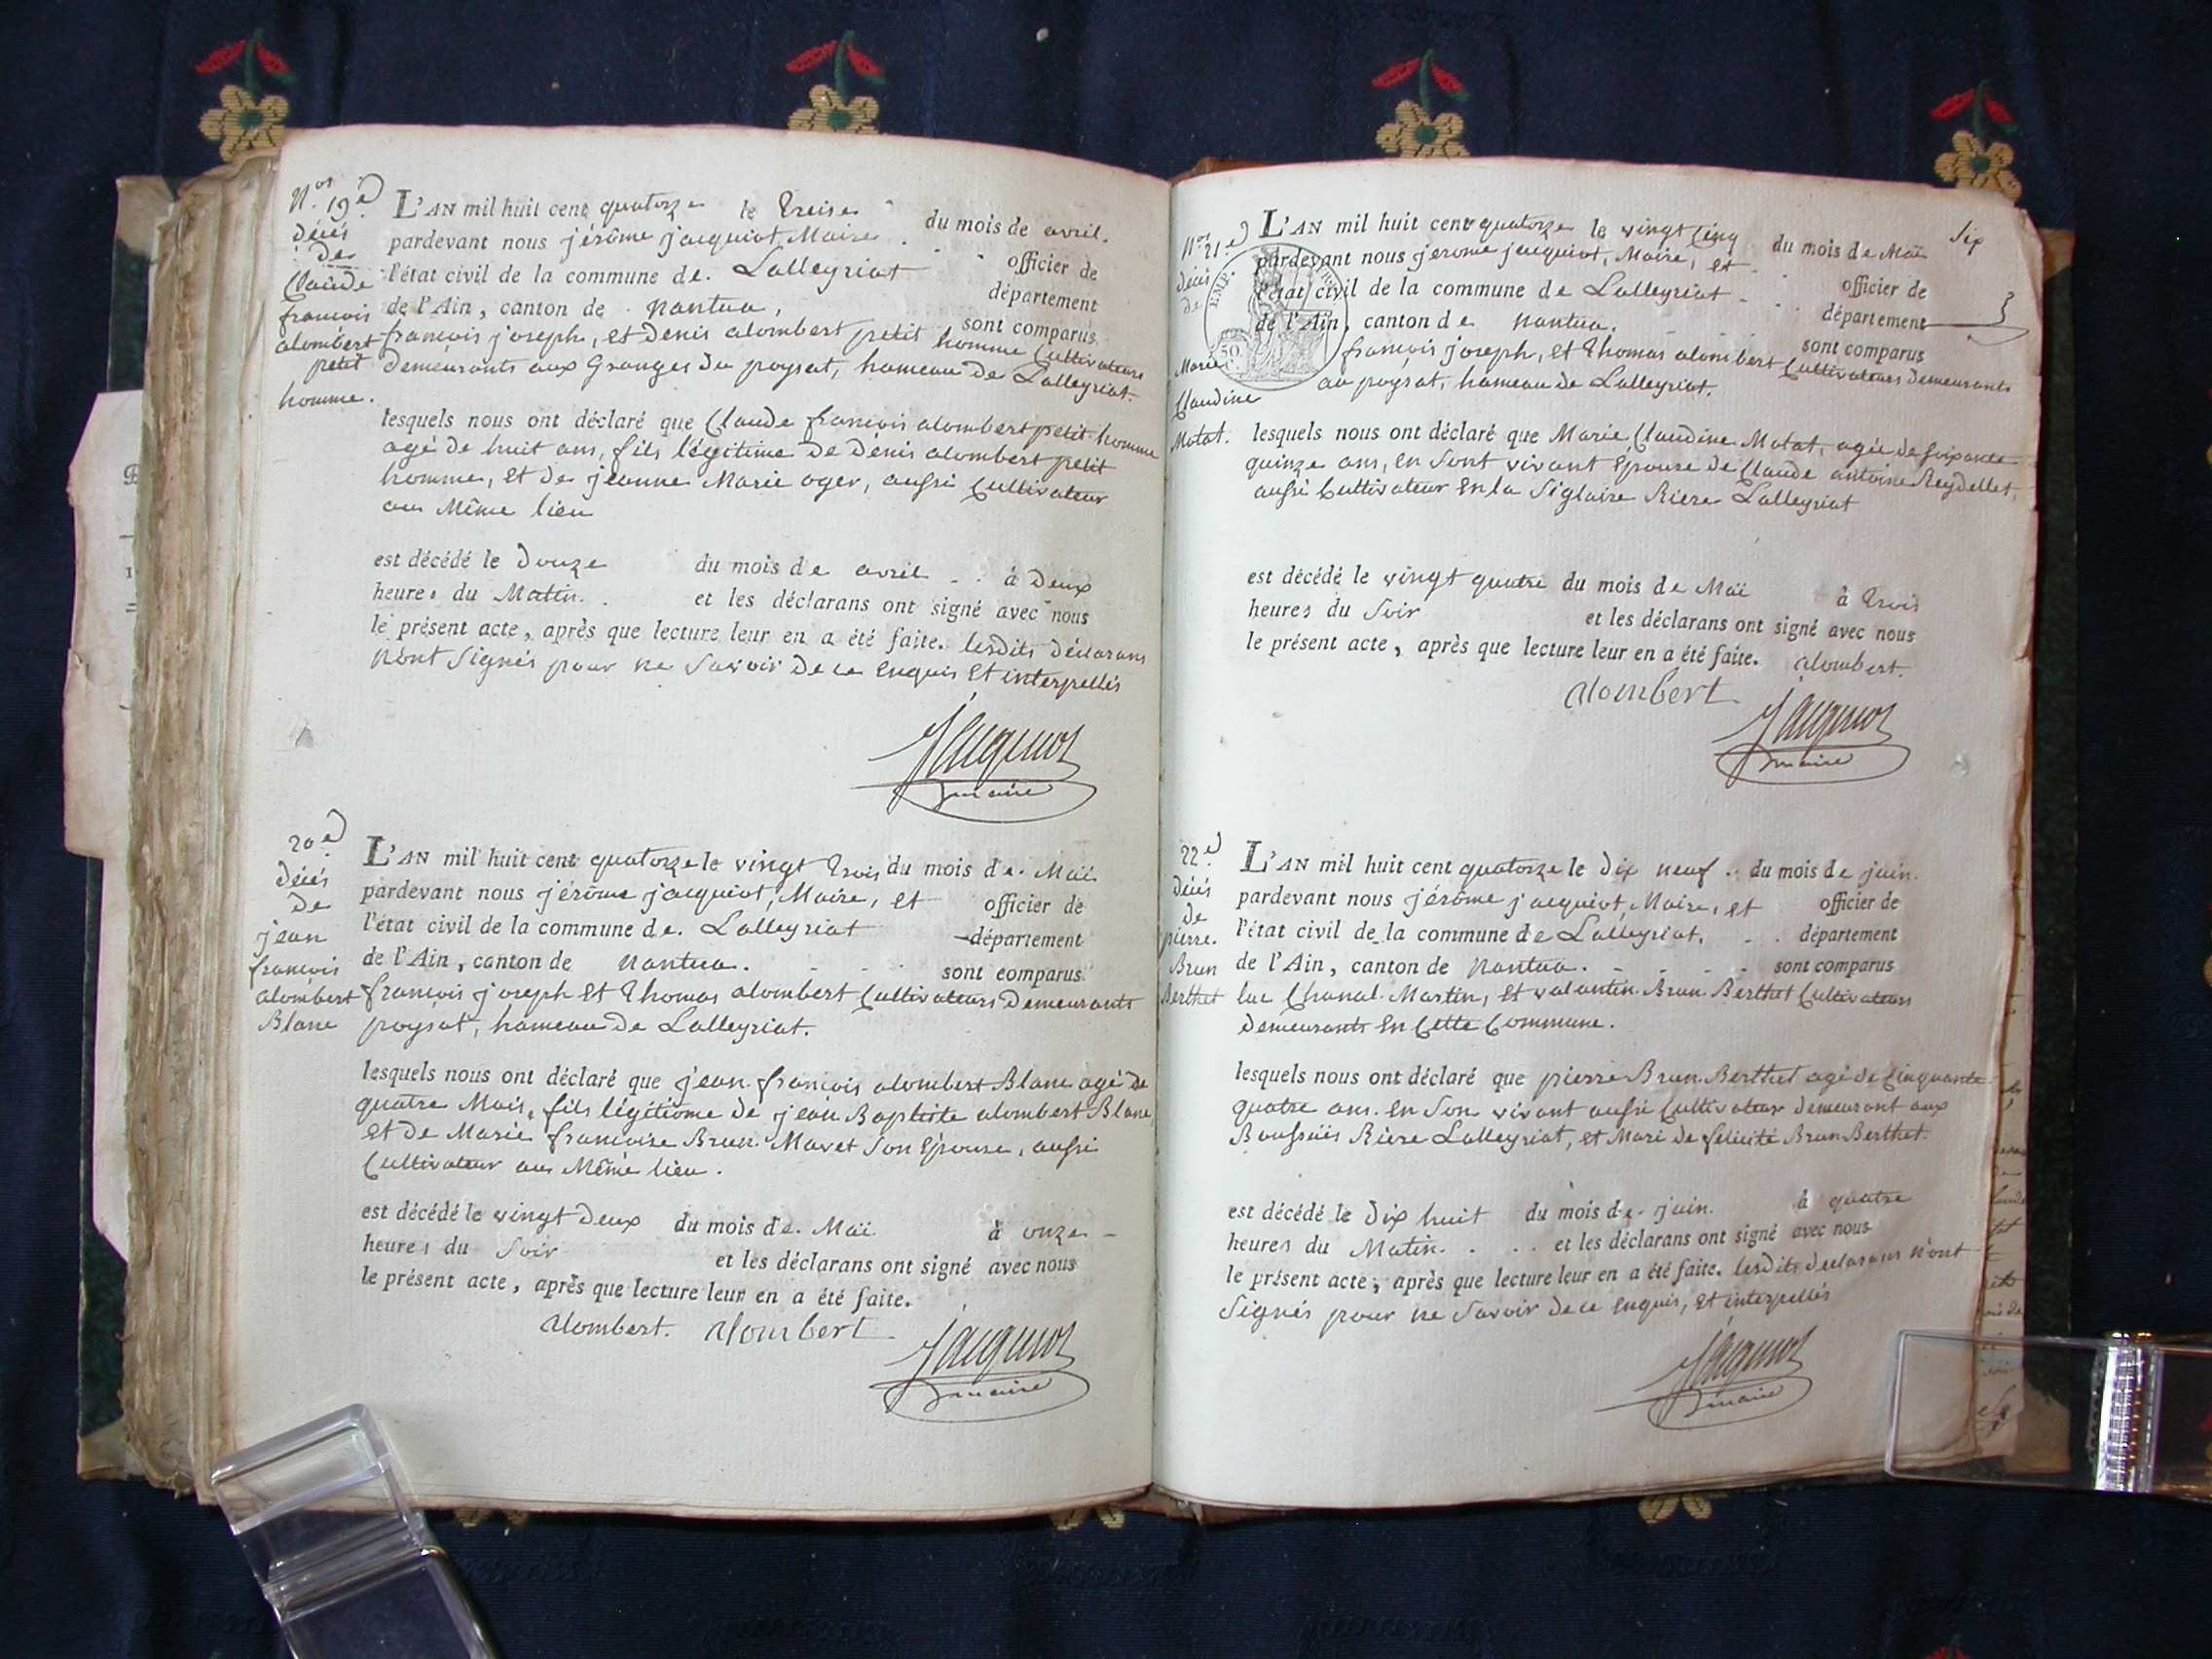 Nos. 19e
décés
de
Claude
francois
alombert
petit
homme.
L'AN mil huit cent quatorze le treize du mois de avril.
pardevant nous jérôme jacquiot, Maire officier de
l'état civil de la commune de Lalleyriat département
de l'Ain, canton de nantua, sont comparus
francois joseph, et Denis alombert petit homme Cultivateurs
demeurants aux Granges du poysat, hameau de Lalleyriat.
lesquels nous ont déclaré que Claude francois alombert petit homme
agé de huit ans, fils légitime de Dénis alombert petit
homme, et de jeanne Marie oger, aussi Cultivateur
au Même lieu
est décédé le Douze du mois de avril à Deux
heures du Matin. et les déclarans ont signé avec nous
le présent acte, après que lecture leur en a été faite. lesdits déclarans
n'ont signés pour ne savoir de ce enquis et interpellés
Jacquiot
maire
20e
décés
de
jean
francois
alombert
Blanc
L'AN mil huit cent quatorze le vingt trois du mois de Maï
pardevant nous jérôme jacquiot, Maire, et officier de
l'état civil de la commune de Lalleyriat département
de l'Ain, canton de nantua. sont comparus
francois joseph et thomas alombert Cultivateurs Demeurants
poysat, hameau de Lalleyriat.
lesquels nous ont déclaré que jean francois alombert Blanc agé de
quatre Mois, fils légitiome de jean Baptiste alombert Blanc,
et de Marie francoise Brun Mavet son épouse, aussi
Cultivateur au Même lieu.
est décédé le vingt deux du mois de Maï à onze
heures du soir et les déclarans ont signé avec nous
le présent acte, après que lecture leur en a été faite.
alombert. alombert
Jacquiot
maire
Six
Nos. 21e
décés
de
Marie
Claudine
Motat.
L'AN mil huit cent quatorze le vingt Cinq du mois de Maï
pardevant nous jerome jacquiot, Maire, et officier de
l'état civil de la commune de Lalleyriat département
de l'Ain, canton de nantua. sont comparus
françois joseph, et thomas alombert Cultivateurs demeurants
au poysat, hameau de Lalleyriat.
lesquels nous ont déclaré que Marie Claudine Motat, agée de soixante
quinze ans, en sont vivant épouse de Claude antoine Reydellet,
aussi Cultivateur en la Siglaire Riere Lalleyriat
est décédé le vingt quatre du mois de Maï à trois
heures du soir et les déclarans ont signé avec nous
le présent acte, après que lecture leur en a été faite. alombert.
alombert
Jacquiot
maire
22e
décés
de
pierre
Brun
Berthet
L'AN mil huit cent quatorze le dix neuf du mois de juin.
pardevant nous jérôme jacquiot, Maire, et officier de
l'état civil de la commune de Lalleyriat. département
de l'Ain, canton de nantua. sont comparus
luc Chanal Martin, et valantin Brun Berthet Cultivateurs
demeurants en Cette Commune.
lesquels nous ont déclaré que pierre Brun Berthet agé de Cinquante
quatre ans. en son vivant aussi Cultivateur demeurant aux
Riere Lalleyriat, et Mari de félicité Brun Berthet.
est décédé le dix huit du mois de juin. à quatre
heures du Matin. et les déclarans ont signé avec nous
le présent acte, après que lecture leur en a été faite. lesdits declarans n'ont
signés pour ne savoir de ce enquis, et interpellés
Jacquiot
maire